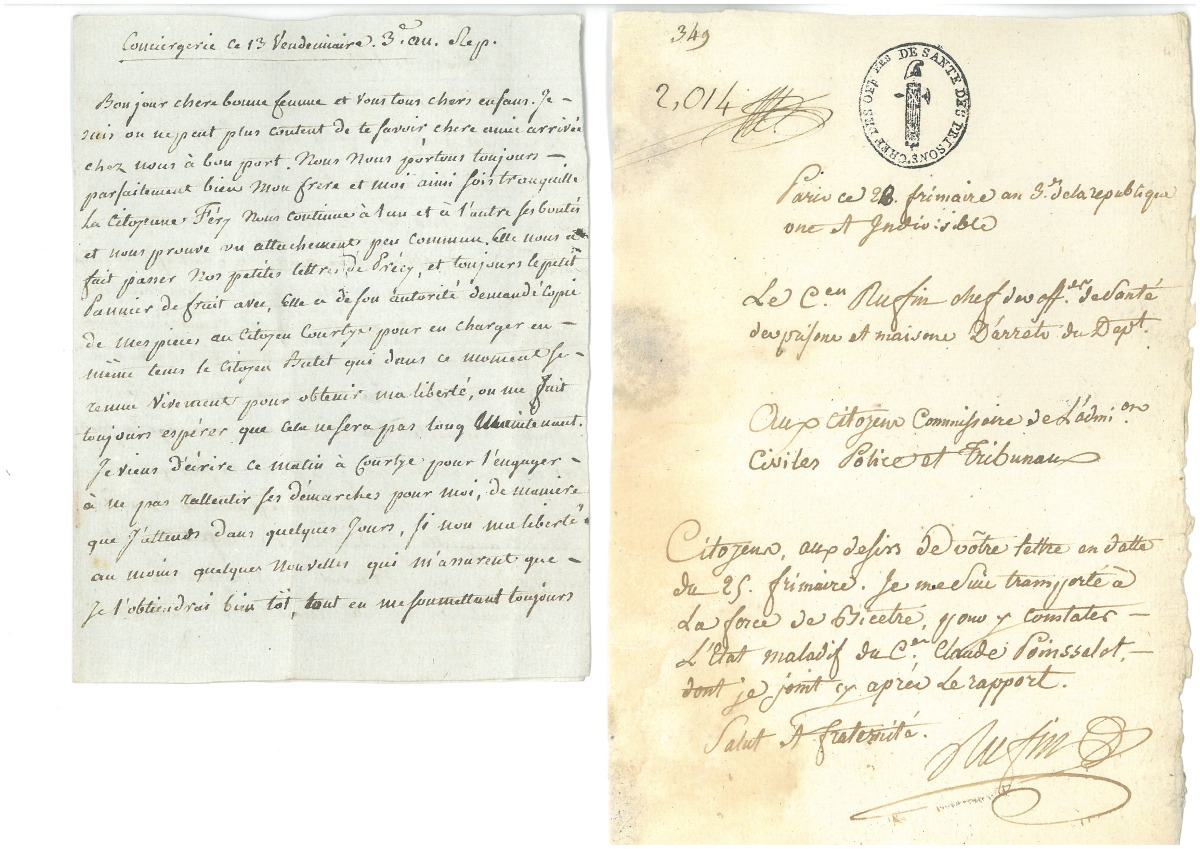 Conciergerie ce 13 Vendemiaire. 3e. an. Rep.
Bonjour chere bonne femme et vous tous chers enfans. Je –
suis on ne peut plus content de te savoir chere amie arrivée
chez nous à bon port. Nous Nous portons toujours –
parfaitement bien Mon frere et moi ainsi sois tranquille
La Citoyenne Féry Nous continue à l'un et à l'autre ses bontés
et nous prouve un attachement peu commun. Elle nous a
fait passer Nos petites lettres de Précy, et toujours le petit
Pannier de fruit avec, Elle a de son autorité demandé Copie
de mes pieces au Citoyen Courtye pour en charger en –
même tems le Citoyen Butet qui dans ce moment se –
remue vivement pour obtenir ma liberté, on me fait
toujours espérer que cela ne sera pas long Maintenant.
Je viens d'écrire ce matin à Courtye pour l'engager –
à ne pas rallentir ses démarches pour moi, de maniere
que J'attends dans quelques Jours, si non ma liberté
au moins quelques nouvelles qui m'assurent que –
Je l'obtiendrai bien tôt, tout en me soumettant toujours
349
2,014
CHEF DES OFF ERS DE SANTE DES PRISONS
Paris ce 28 frimaire an 3e. de la republique
une et Indivisible
Le Cen Ruffin chef des offers de Santé
des prisons et maisons D'arrêts du Dept.
Aux citoyens Commissaire de L'admion
Civiles Police et Tribunaux
Citoyens, aux desirs de vôtre lettre en datte
du 25. frimaire. Je me suis transporté à
La force de Bicetre, pour y constater –
L'Etat maladif du Cen. Claude Poinsselot, –
dont je joint cy après Le rapport.
Salut et fraternité.
Ruffin